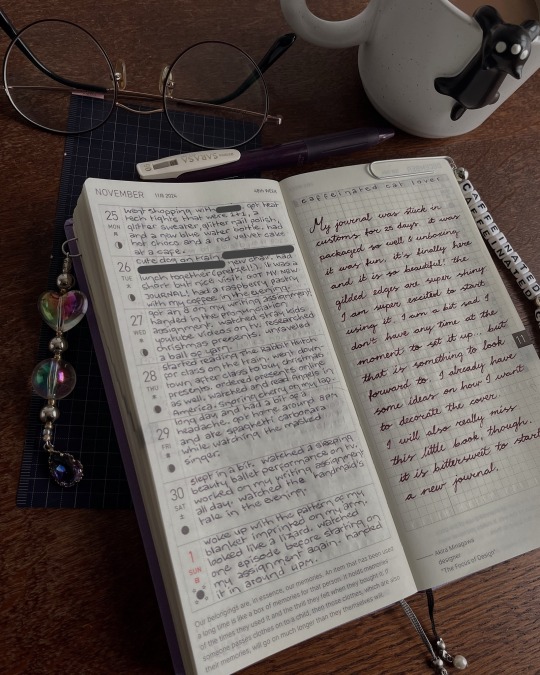 SARASA
NOVEMBER 11月 2024 48th WEEK
25 MON
went shopping with got heat
tech tights that were 1+1, a
glitter sweater, glitter nail polish,
and a new blue water bottle, had
hot choco and a red velvet cake
at a cafe.
26 TUE
cute dog on train new chair, had
lunch together (pretzel!). it was a
short but nice visit. got my new
JOURNAL! had a raspberry pastry
with my coffee in the evening.
27 WED
got and on my writing assignment
handed in the pronunciation
assignment, watching stray kids
youtube videos on tv. researched
christmas presents. unraveled
a ball of yarn.
28 THU
started reading the rabbit hutch
for class on the train, went down
town after class to buy christmas
presents. ordered presents online
as well. watched and read angels in
America. snoring cherry on my lap.
29 FRI
long day and had a bit of a
headache. got home around 5pm
and ate spaghetti carbonara
while watching the masked
singer.
30 SAT
slept in a bit. watched a sleeping
beauty ballet performance on tv.
worked on my writing assignment
all day. watched the handmaid's
tale in the evening.
1 SUN
woke up with the pattern of my
blanket imprinted on my arm.
looked like a lizard. watched
one episode before starting on
my assignment again. handed
it in around 4pm.
Our belongings are, in essence, our memories. An item that has been used
a long time is like a box of memories for that person. It holds memories
of the times they used it and the thrill they felt when they bought it. If
someone passes clothes on to a child, then those clothes, which are also
their memories, will go on much longer than they themselves will.
caffeinated cat lover
My journal was stuck in
customs for 20 days. it was
packaged so well & unboxing
it was fun. it's finally here
and it is so beautiful! the
gilded edges are super shiny.
I am super excited to start
using it. I am a bit sad I
don't have any time at the
moment to set it up. but
that is something to look
forward to. I already have
some ideas on how I want
to decorate the cover.
I will also really miss
this little book, though.
it is bittersweet to start
a new journal.
11
Akira Minagawa
designer
"The Focus of Design"
CAFFEINATED
CAFFEINATED